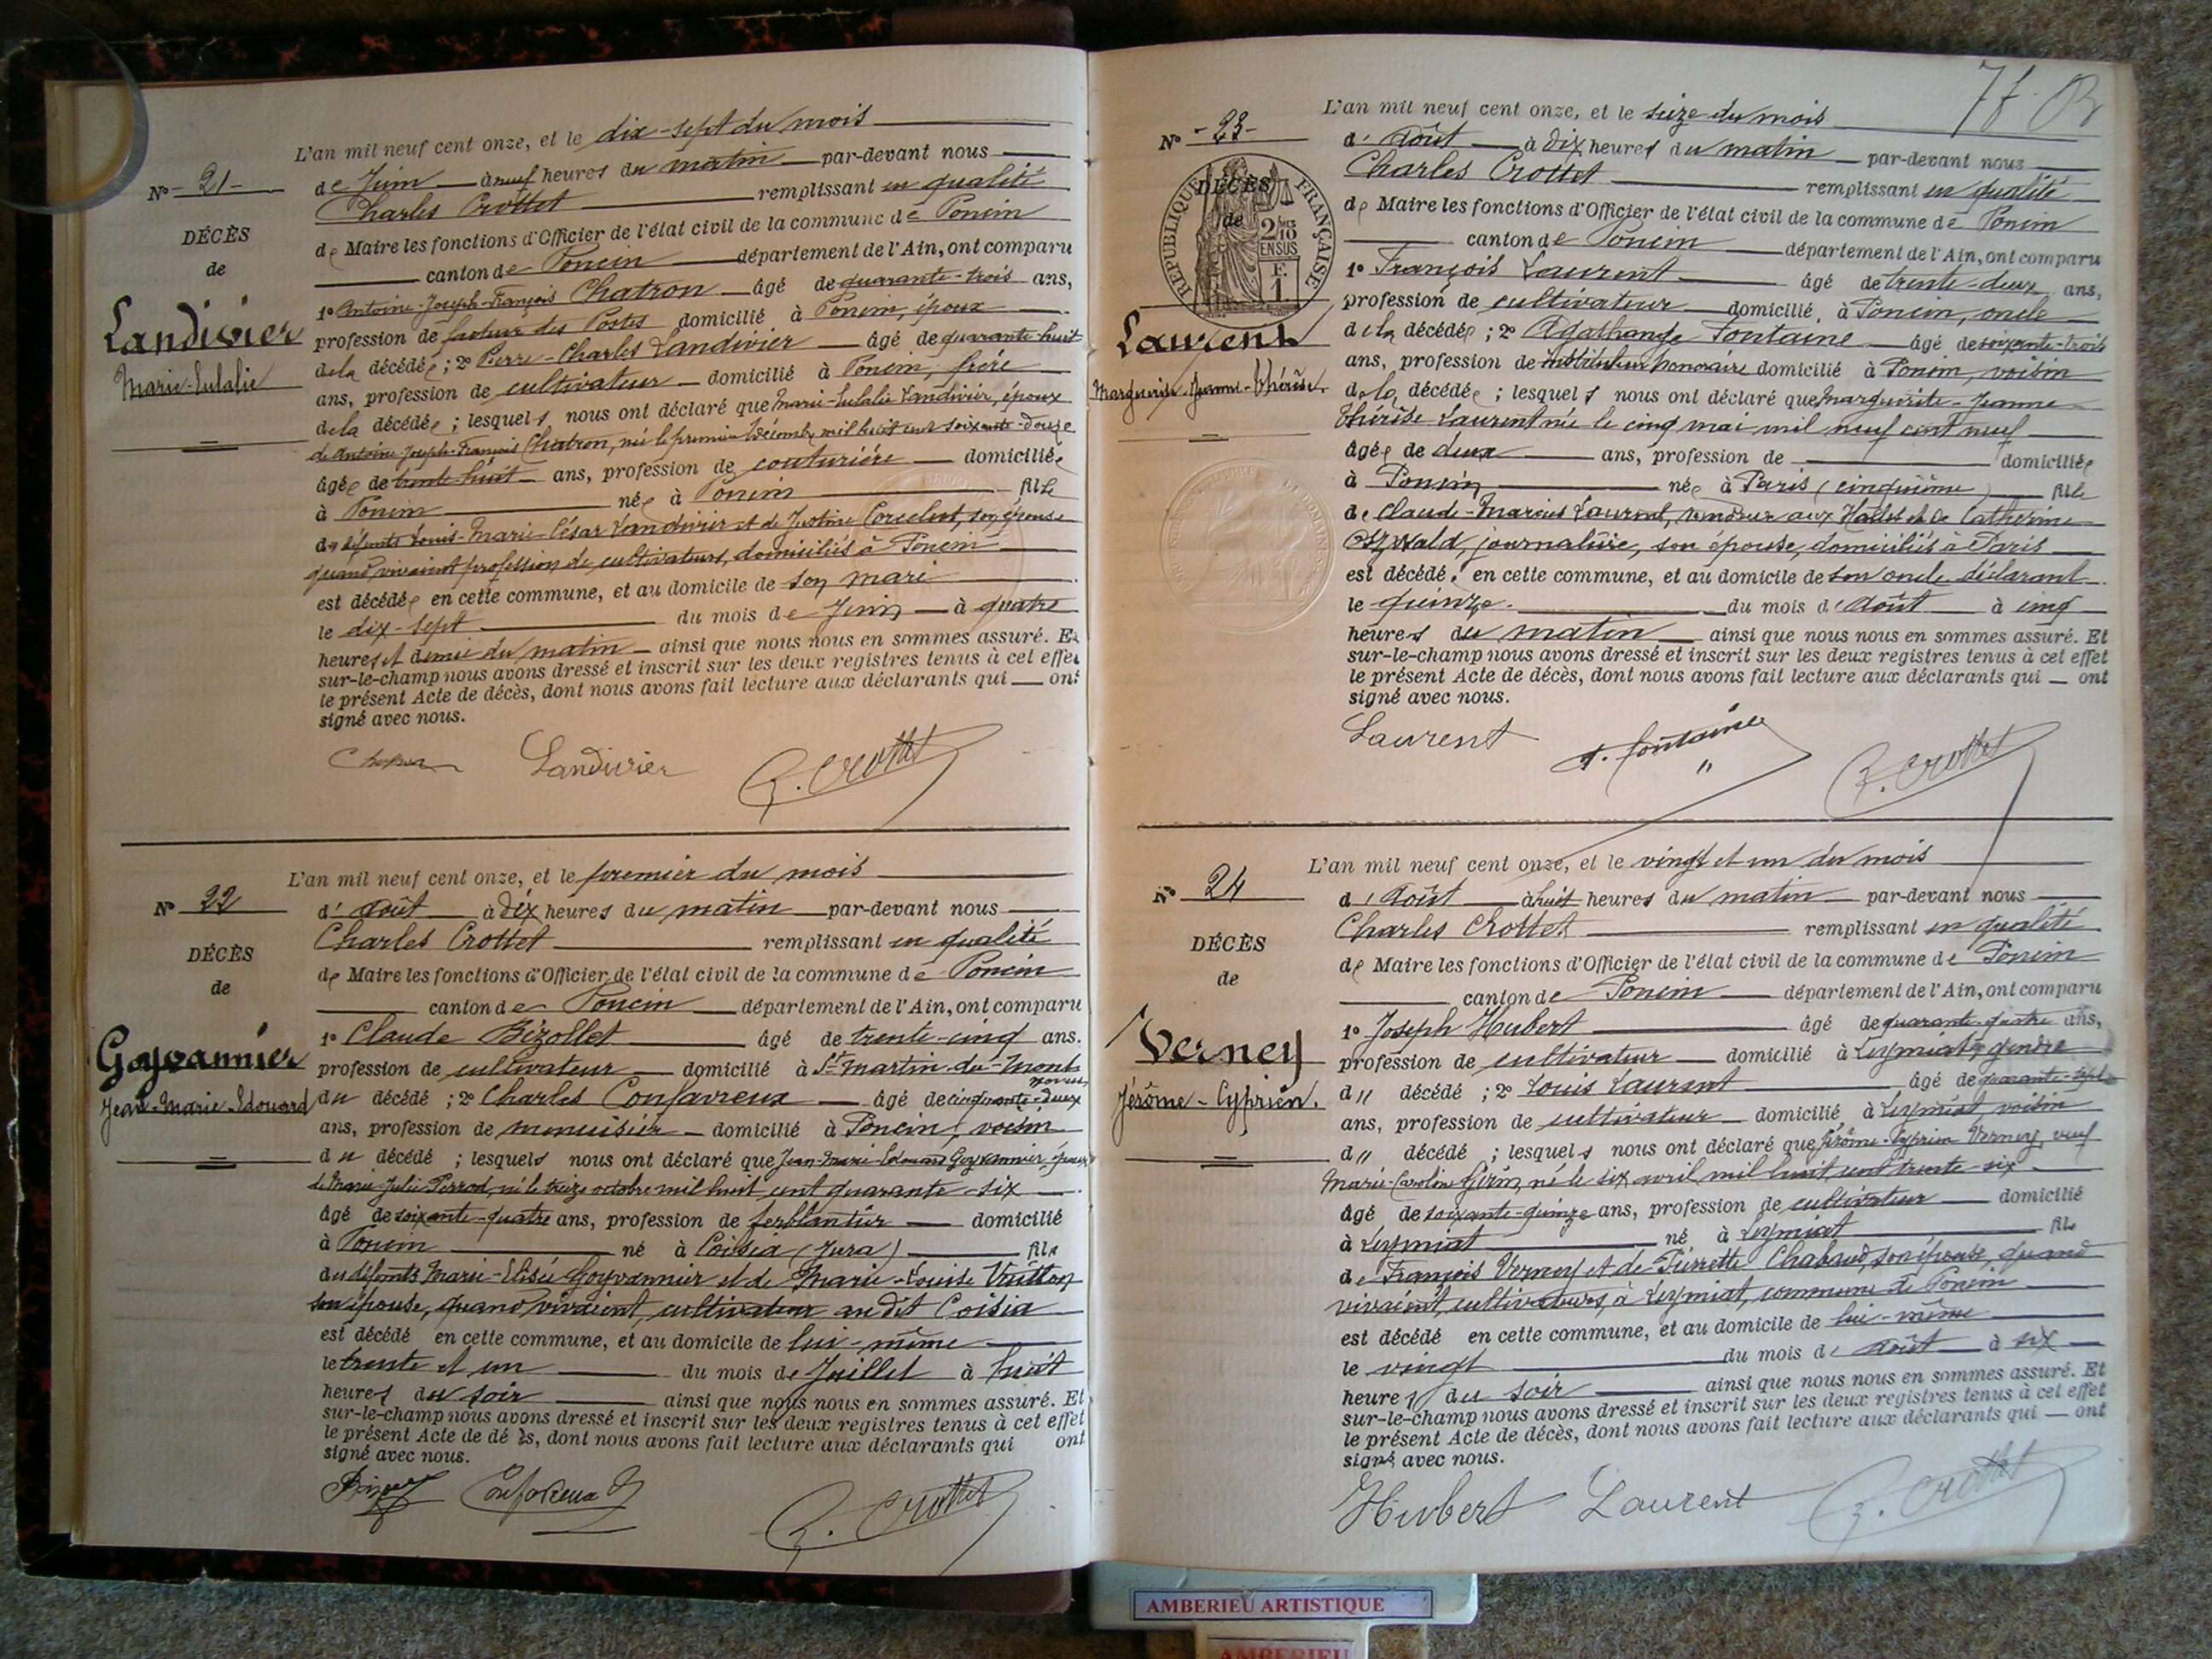 L'an mil neuf cent onze, et le dix-sept du mois
N° - 21 -
de Juin à neuf heures du matin par-devant nous
Charles Crottet remplissant en qualité
DÉCÈS
de Maire les fonctions d'Officier de l'état civil de la commune de Poncin
de
canton de Poncin département de l'Ain, ont comparu
Landivier
Marie-Eulalie
1° Antoine-Joseph-François Chatron âgé de quarante-trois ans,
profession de facteur des Postes domicilié à Poncin, époux
de la décédée ; 2° Pierre-Charles Landivier âgé de quarante-huit
ans, profession de cultivateur domicilié à Poncin, frère
de la décédée ; lesquels nous ont déclaré que Marie-Eulalie Landivier, épouse
de Antoine-Joseph-François Chatron, née le premier Décembre mil huit cent soixante-douze
âgée de trente-huit ans, profession de couturière domiciliée
à Poncin née à Poncin fille
des défunts Louis-Marie-César Landivier et de Justine son épouse
quand vivaient profession de cultivateurs, domiciliés à Poncin
est décédée en cette commune, et au domicile de son mari
le dix-sept du mois de Juin à quatre
heures et demie du matin ainsi que nous nous en sommes assuré. Et
sur-le-champ nous avons dressé et inscrit sur les deux registres tenus à cet effet
le présent Acte de décès, dont nous avons fait lecture aux déclarants qui ont
signé avec nous.
Landivier C. Crottet
L'an mil neuf cent onze, et le premier du mois
N° 22
d'Août à dix heures du matin par-devant nous
Charles Crottet remplissant en qualité
DÉCÈS
de Maire les fonctions d'Officier de l'état civil de la commune de Poncin
de
canton de Poncin département de l'Ain, ont comparu
Goyvannier
Jean-Marie-Edouard
1° Claude Bizollet âgé de trente-cinq ans.
profession de cultivateur domicilié à St Martin-du-Mont
neveu
du décédé ; 2° Charles Confavreux âgé de cinquante-deux
ans, profession de menuisier domicilié à Poncin, voisin
du décédé ; lesquels nous ont déclaré que Jean-Marie-Edouard Goyvannier, époux
de Marie-Julie Perrod, né le treize octobre mil huit cent quarante-six
âgé de soixante-quatre ans, profession de ferblantier domicilié
à Poncin né à Coisia (Jura) fils
des défunts Marie-Elisée Goyvannier et de Marie-Louise
son épouse, quand vivaient, cultivateurs au dit Coisia
est décédé en cette commune, et au domicile de lui-même
le trente et un du mois de Juillet à huit
heures du soir ainsi que nous nous en sommes assuré. Et
sur-le-champ nous avons dressé et inscrit sur les deux registres tenus à cet effet
le présent Acte de dé ès, dont nous avons fait lecture aux déclarants qui ont
signé avec nous.
Confavreux C. Crottet
L'an mil neuf cent onze, et le seize du mois
N° - 23 -
d'Août à dix heures du matin par-devant nous
Charles Crottet remplissant en qualité
RÉPUBLIQUE FRANÇAISE
DÉCÈS
de
2/10
EN SUS
F.
1.
de Maire les fonctions d'Officier de l'état civil de la commune de Poncin
canton de Poncin département de l'Ain, ont comparu
Laurent
Marguerite-Jeanne-Thérèse
1° François Laurent âgé de trente-deux ans,
profession de cultivateur domicilié à Poncin, oncle
de la décédée ; 2° Agathange Fontaine âgé de soixante-trois
ans, profession de Instituteur honoraire domicilié à Poncin, voisin
de la décédée ; lesquels nous ont déclaré que Marguerite-Jeanne
Thérèse Laurent née le cinq mai mil neuf cent neuf
âgée de deux ans, profession de domiciliée
à Poncin née à Paris (cinquième) fille
de Claude-Marius Laurent, vendeur aux Halles et de Catherine
Oszwald, journalière, son épouse, domiciliés à Paris
est décédée en cette commune, et au domicile de son oncle déclarant
le quinze du mois d'Août à cinq
heures du matin ainsi que nous nous en sommes assuré. Et
sur-le-champ nous avons dressé et inscrit sur les deux registres tenus à cet effet
le présent Acte de décès, dont nous avons fait lecture aux déclarants qui ont
signé avec nous.
Laurent A. Fontaine C. Crottet
L'an mil neuf cent onze, et le vingt et un du mois
N° 24
d'Août à huit heures du matin par-devant nous
Charles Crottet remplissant en qualité
DÉCÈS
de Maire les fonctions d'Officier de l'état civil de la commune de Poncin
de
canton de Poncin département de l'Ain, ont comparu
Verney
Jérôme-Cyprien.
1° Joseph Hubert âgé de quarante-quatre ans,
profession de cultivateur domicilié à Leymiat, gendre
du décédé ; 2° Louis Laurent âgé de quarante-sept
ans, profession de cultivateur domicilié à Leymiat, voisin
du décédé ; lesquels nous ont déclaré que Jérôme-Cyprien Verney, veuf
Marie-Caroline né le six avril mil huit cent trente-six
âgé de soixante-quinze ans, profession de cultivateur domicilié
à Leymiat né à Leymiat fils
de François Verney et de Pierrette Chabaud, son épouse, quand
vivaient, cultivateurs, à Leymiat, commune de Poncin
est décédé en cette commune, et au domicile de lui-même
le vingt du mois d'Août à six
heures du soir ainsi que nous nous en sommes assuré. Et
sur-le-champ nous avons dressé et inscrit sur les deux registres tenus à cet effet
le présent Acte de décès, dont nous avons fait lecture aux déclarants qui ont
signé avec nous.
Hubert Laurent C. Crottet
AMBERIEU ARTISTIQUE
AMBERIEU